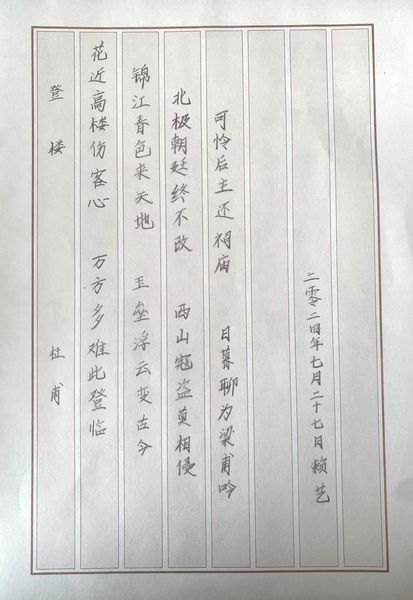 登楼 杜甫
花近高楼伤客心 万方多难此登临
锦江春色来天地 玉垒浮云变古今
北极朝廷终不改 西山寇盗莫相侵
可怜后主还祠庙 日暮聊为梁甫吟
二零二四年七月二十七日赖艺